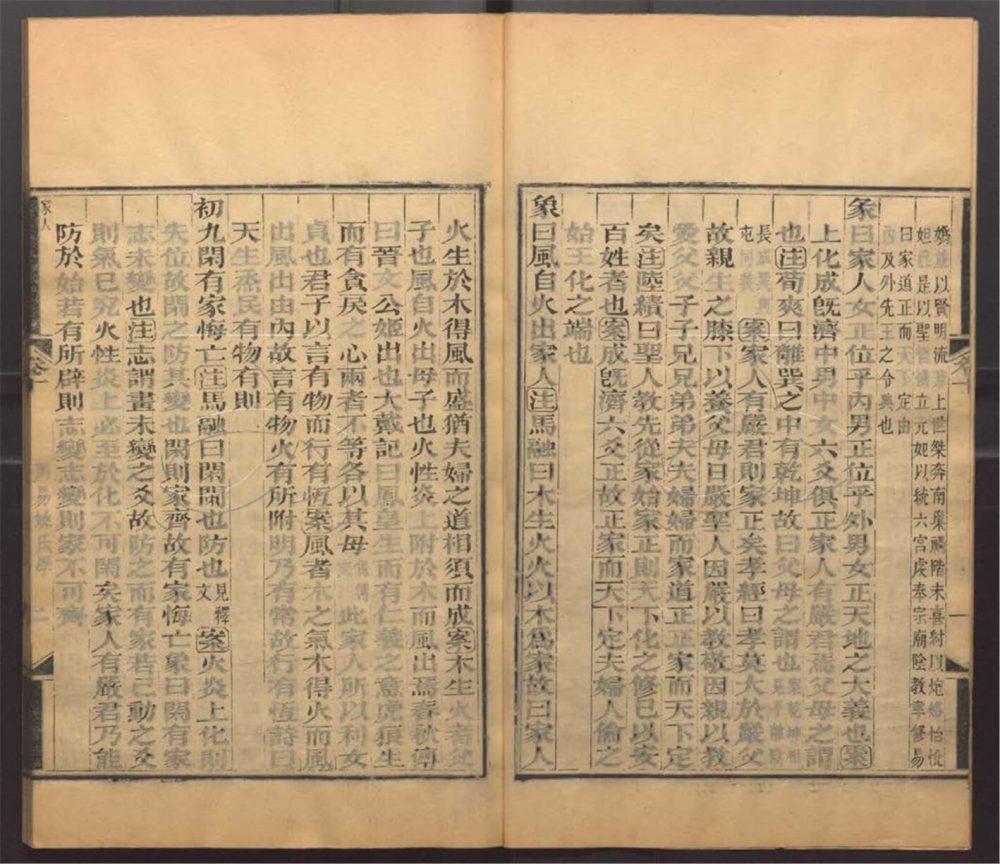 以賢明流於上世桀奔南巢禍階末喜紂以炮烙怡悅
妲己是以聖立元妃以統六宮虔奉宗廟陰教聿修易
曰家道正而天下定由
內及外先王之令典也
彖曰家人女正位乎內男正位乎外男女正天地之大義也案
上化成旣濟中男中女六爻俱正家人有嚴君焉父母之謂
也注荀爽曰離巽之中有乾坤故曰父母之謂也
案家人有嚴君則家正矣孝經曰孝莫大於嚴父
故親生之膝下以養父母日嚴聖人因嚴以教敬因親以教
愛父父子子兄兄弟弟夫夫婦婦而家道正正家而天下定
矣注陸績曰聖人教先從家始家正則天下化之修已以安
百姓者也案成旣濟六爻正故正家而天下定夫婦人倫之
始王化之端也
象曰風自火出家人注馬融曰木生火火以木爲家故曰家人
火生於木得風而盛猶夫婦之道相須而成案木生火者父
子也風自火出母子也火性炎上附於木而風出焉春秋傳
曰晉文公姬出也大戴記曰鳳皇生而有仁義之意虎狼生
而有貪戾之心兩者不等各以其母此家人所以利女
貞也君子以言有物而行有恆案風者木之氣木得火而風
出風出由內故言有物火有所附明乃有常故行有恆詩曰
天生烝民有物有則
初九閑有家悔亡注馬融曰閑闌也防也見釋文案火炎上化則
失位故閑之防其變也閑則家齊故有家悔亡象曰閑有家
志未變也注志謂畫未變之爻故防之而有家若已動之爻
則氣已究火性炎上必至於化不可閑矣家人有嚴君乃能
防於始若有所辟則志變志變則家不可齊
家人
卷十
周易姚氏學